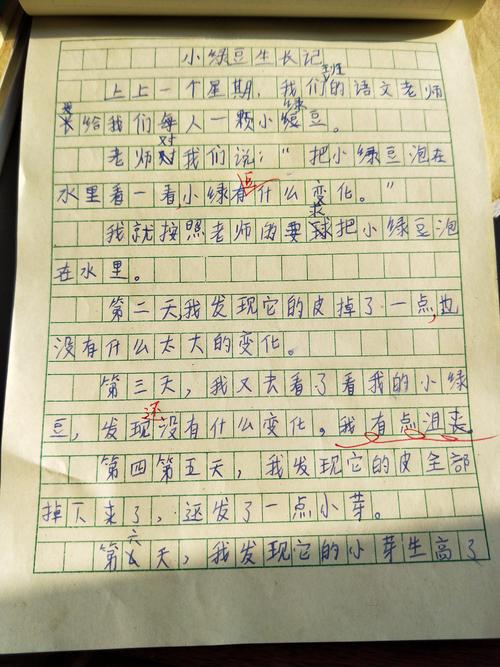 小绿豆生长记
上上一个星期，我们班的语文老师
给我们每人一颗小绿豆。
老师对我们说：“把小绿豆泡在
水里看一看小绿豆有什么变化。”
我就按照老师的要求把小绿豆泡
在水里。
第二天我发现它的皮掉了一点，也
没有什么太大的变化。
第三天，我又去看了看我的小绿
豆，发现还没有什么变化。我有点沮丧。
第四第五天，我发现它的皮全部
掉下来了，还发了一点小芽。
第六天，我发现它的小芽生高了